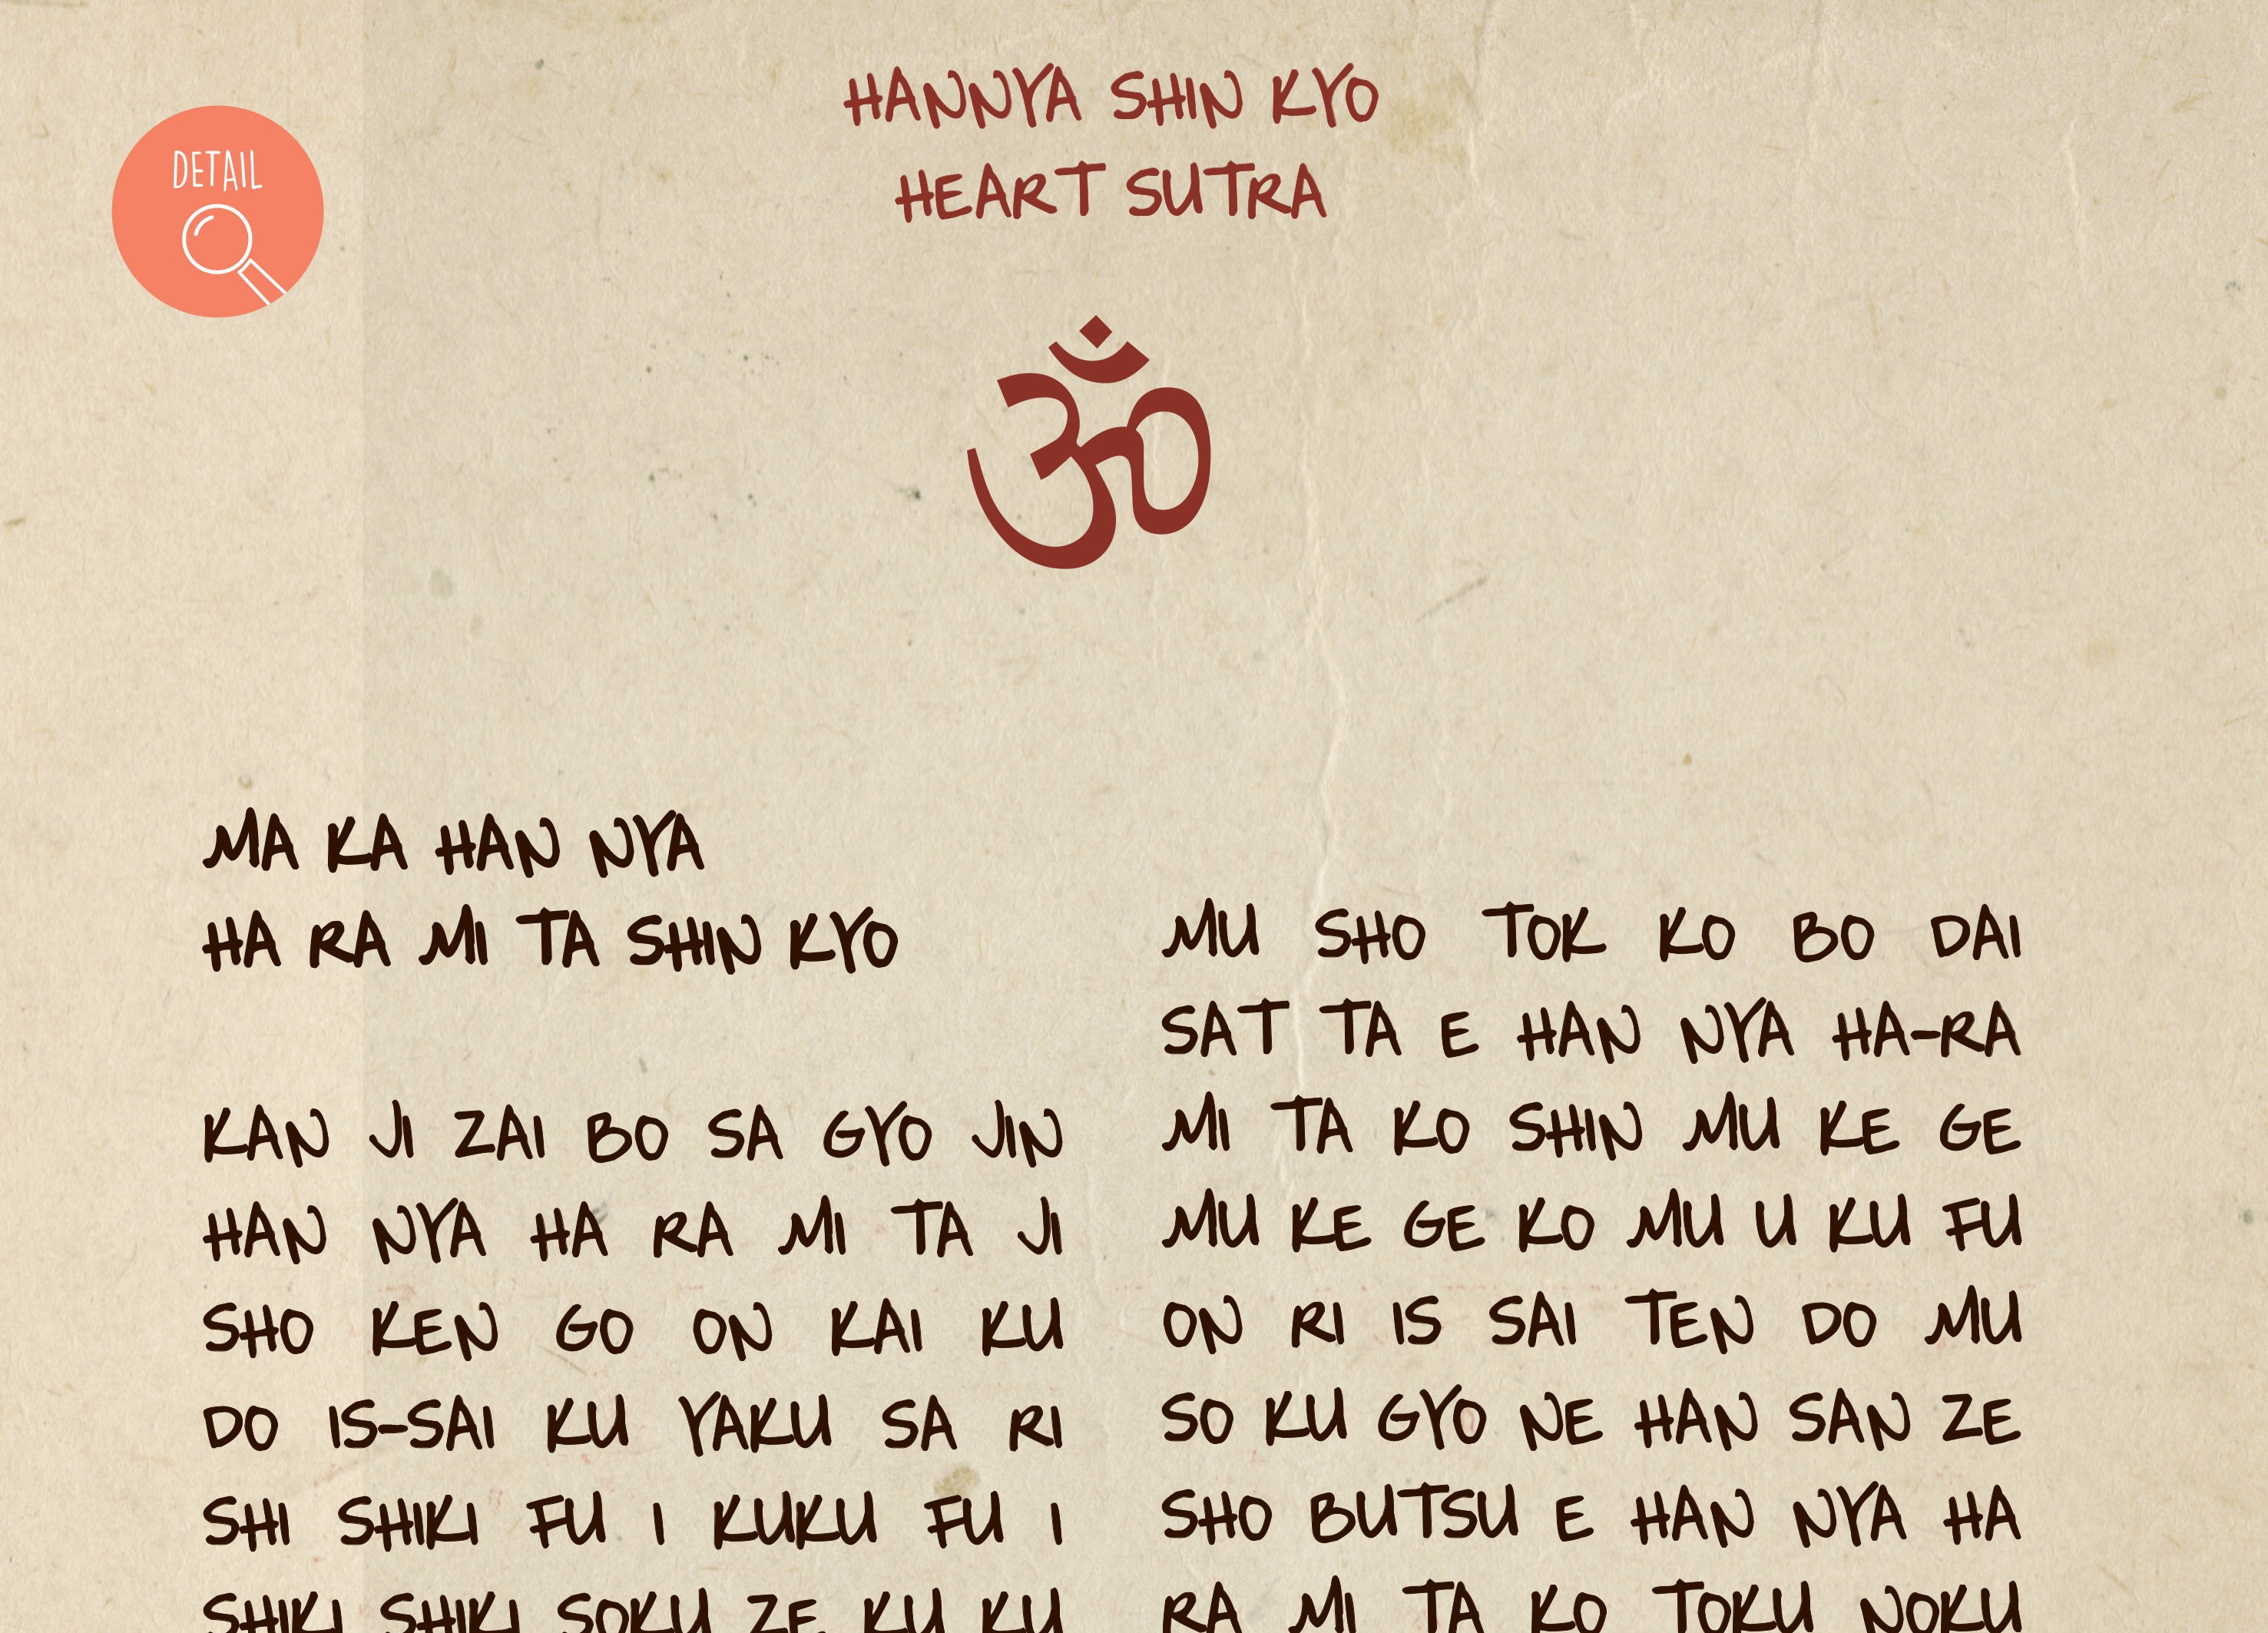 HANNYA SHIN KYO
HEART SUTRA
DETAIL
ॐ
MA KA HAN NYA
HA RA MI TA SHIN KYO
KAN JI ZAI BO SA GYO JIN
HAN NYA HA RA MI TA JI
SHO KEN GO ON KAI KU
DO IS-SAI KU YAKU SA RI
SHI SHIKI FU I KUKU FU I
SHIKI SHIKI SOKU ZE KU KU
MU SHO TOK KO BO DAI
SAT TA E HAN NYA HA-RA
MI TA KO SHIN MU KE GE
MU KE GE KO MU U KU FU
ON RI IS SAI TEN DO MU
SO KU GYO NE HAN SAN ZE
SHO BUTSU E HAN NYA HA
RA MI TA KO TOKU NOKU